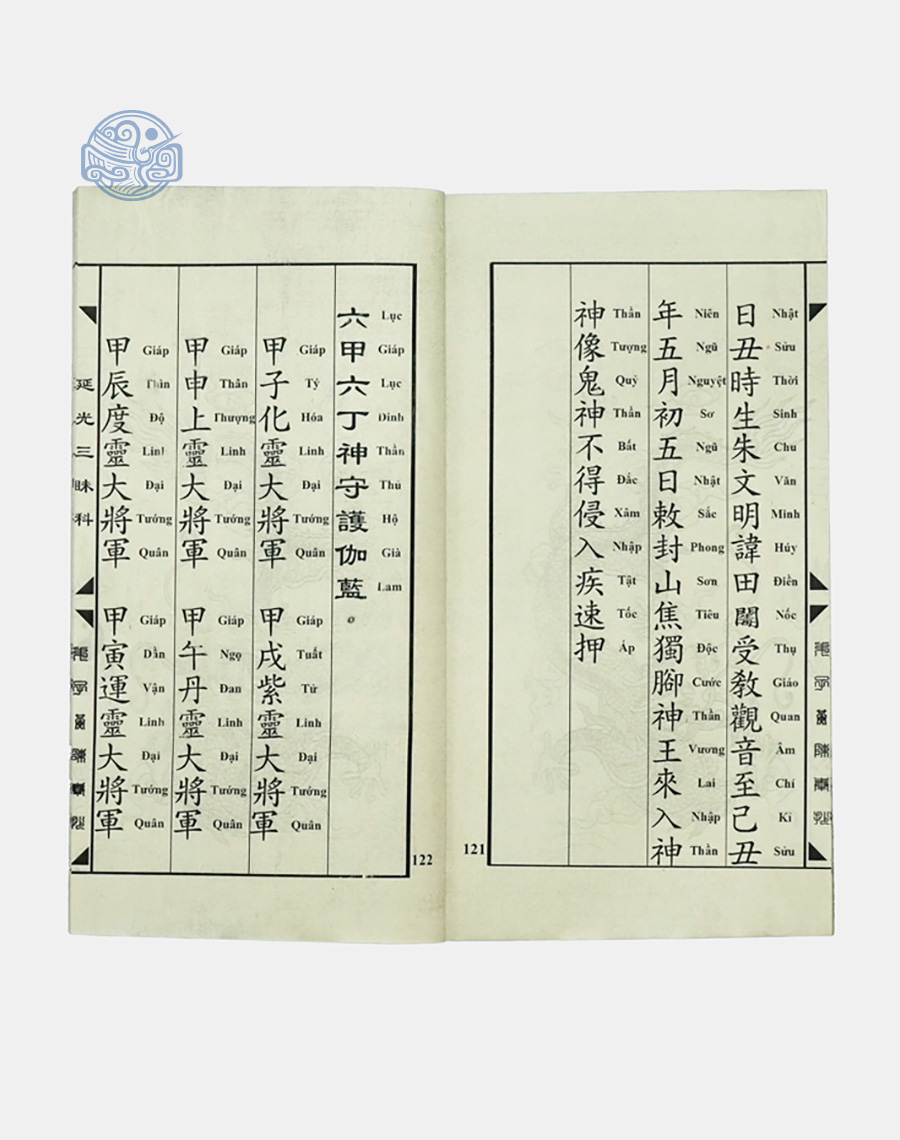 日丑時生朱文明諱田受敎觀音至己丑
Nhật Sửu Thời Sinh Chu Văn Minh Húy Điền Nốc Thụ Giáo Quan Âm Chí Kỉ Sửu
年五月初五日敕封山焦獨腳神王來入神
Niên Ngũ Nguyệt Sơ Ngũ Nhật Sắc Phong Sơn Tiêu Độc Cước Thần Vương Lai Nhập Thần
神像鬼神不得侵入疾速押
Thần Tượng Quỷ Thần Bất Đắc Xâm Nhập Tật Tốc Áp
121
六甲六丁神守護伽藍
Lục Giáp Lục Đinh Thần Thủ Hộ Già Lam
甲子化靈大將軍 甲戌紫靈大將軍
Giáp Tý Hóa Linh Đại Tướng Quân Giáp Tuất Tử Linh Đại Tướng Quân
甲申上靈大將軍 甲午丹靈大將軍
Giáp Thân Thượng Linh Đại Tướng Quân Giáp Ngọ Đan Linh Đại Tướng Quân
甲辰度靈大將軍 甲寅運靈大將軍
Giáp Thìn Độ Linh Đại Tướng Quân Giáp Dần Vận Linh Đại Tướng Quân
延光三昧科
122